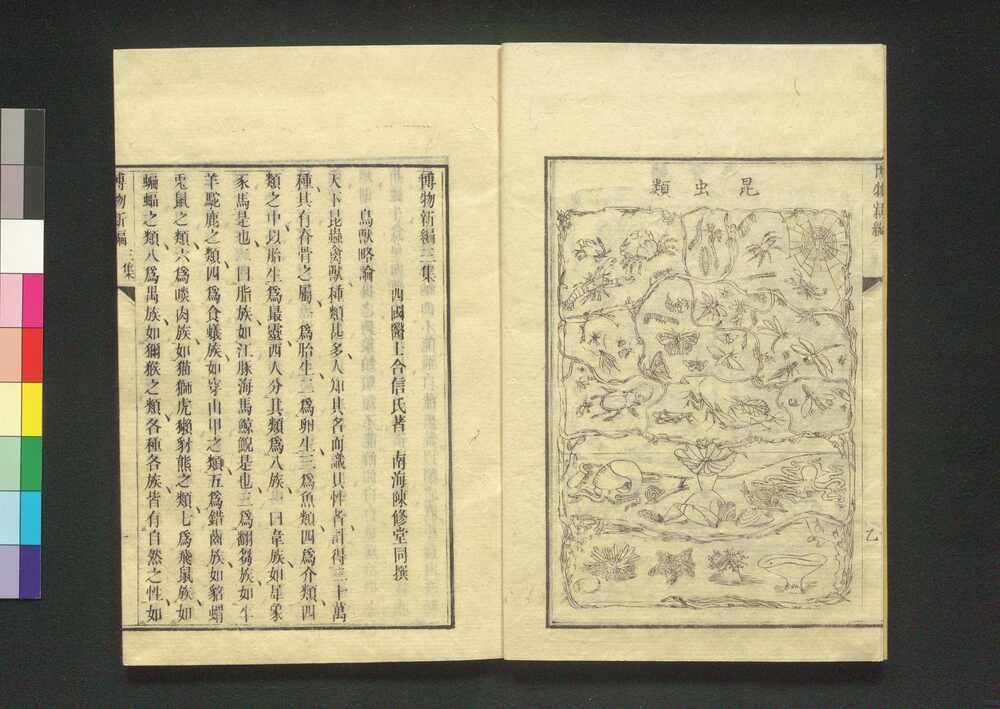 昆虫類
乙
博物新編
博物新編三集
西國醫士合信氏著 南海陳修堂同撰
鳥獸略論
天下昆蟲禽獸種類甚多人知其名而識其性者計得三十萬
種其有脊骨之屬一為胎生二為卵生三為魚類四為介類四
類之中以胎生為最靈西人分其類為八族一曰韋族如犀象
豕馬是也二曰脂族如江豚海馬鯨鯢是也三為翻芻族如牛
羊駝鹿之類四為食蟻族如穿山甲之類五為錯齒族如貂蝟
兎鼠之類六為啖肉族如猫獅虎獺豺熊之類七為飛鼠族如
蝙蝠之類八為禺族如獼猴之類各種各族皆有自然之性如
博物新編 三集
一